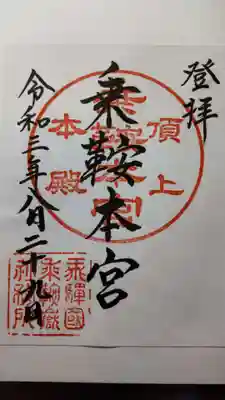 登拝
頂上
乗鞍本宮
本殿
令和三年八月二十九日
飛驒國
乗鞍嶽